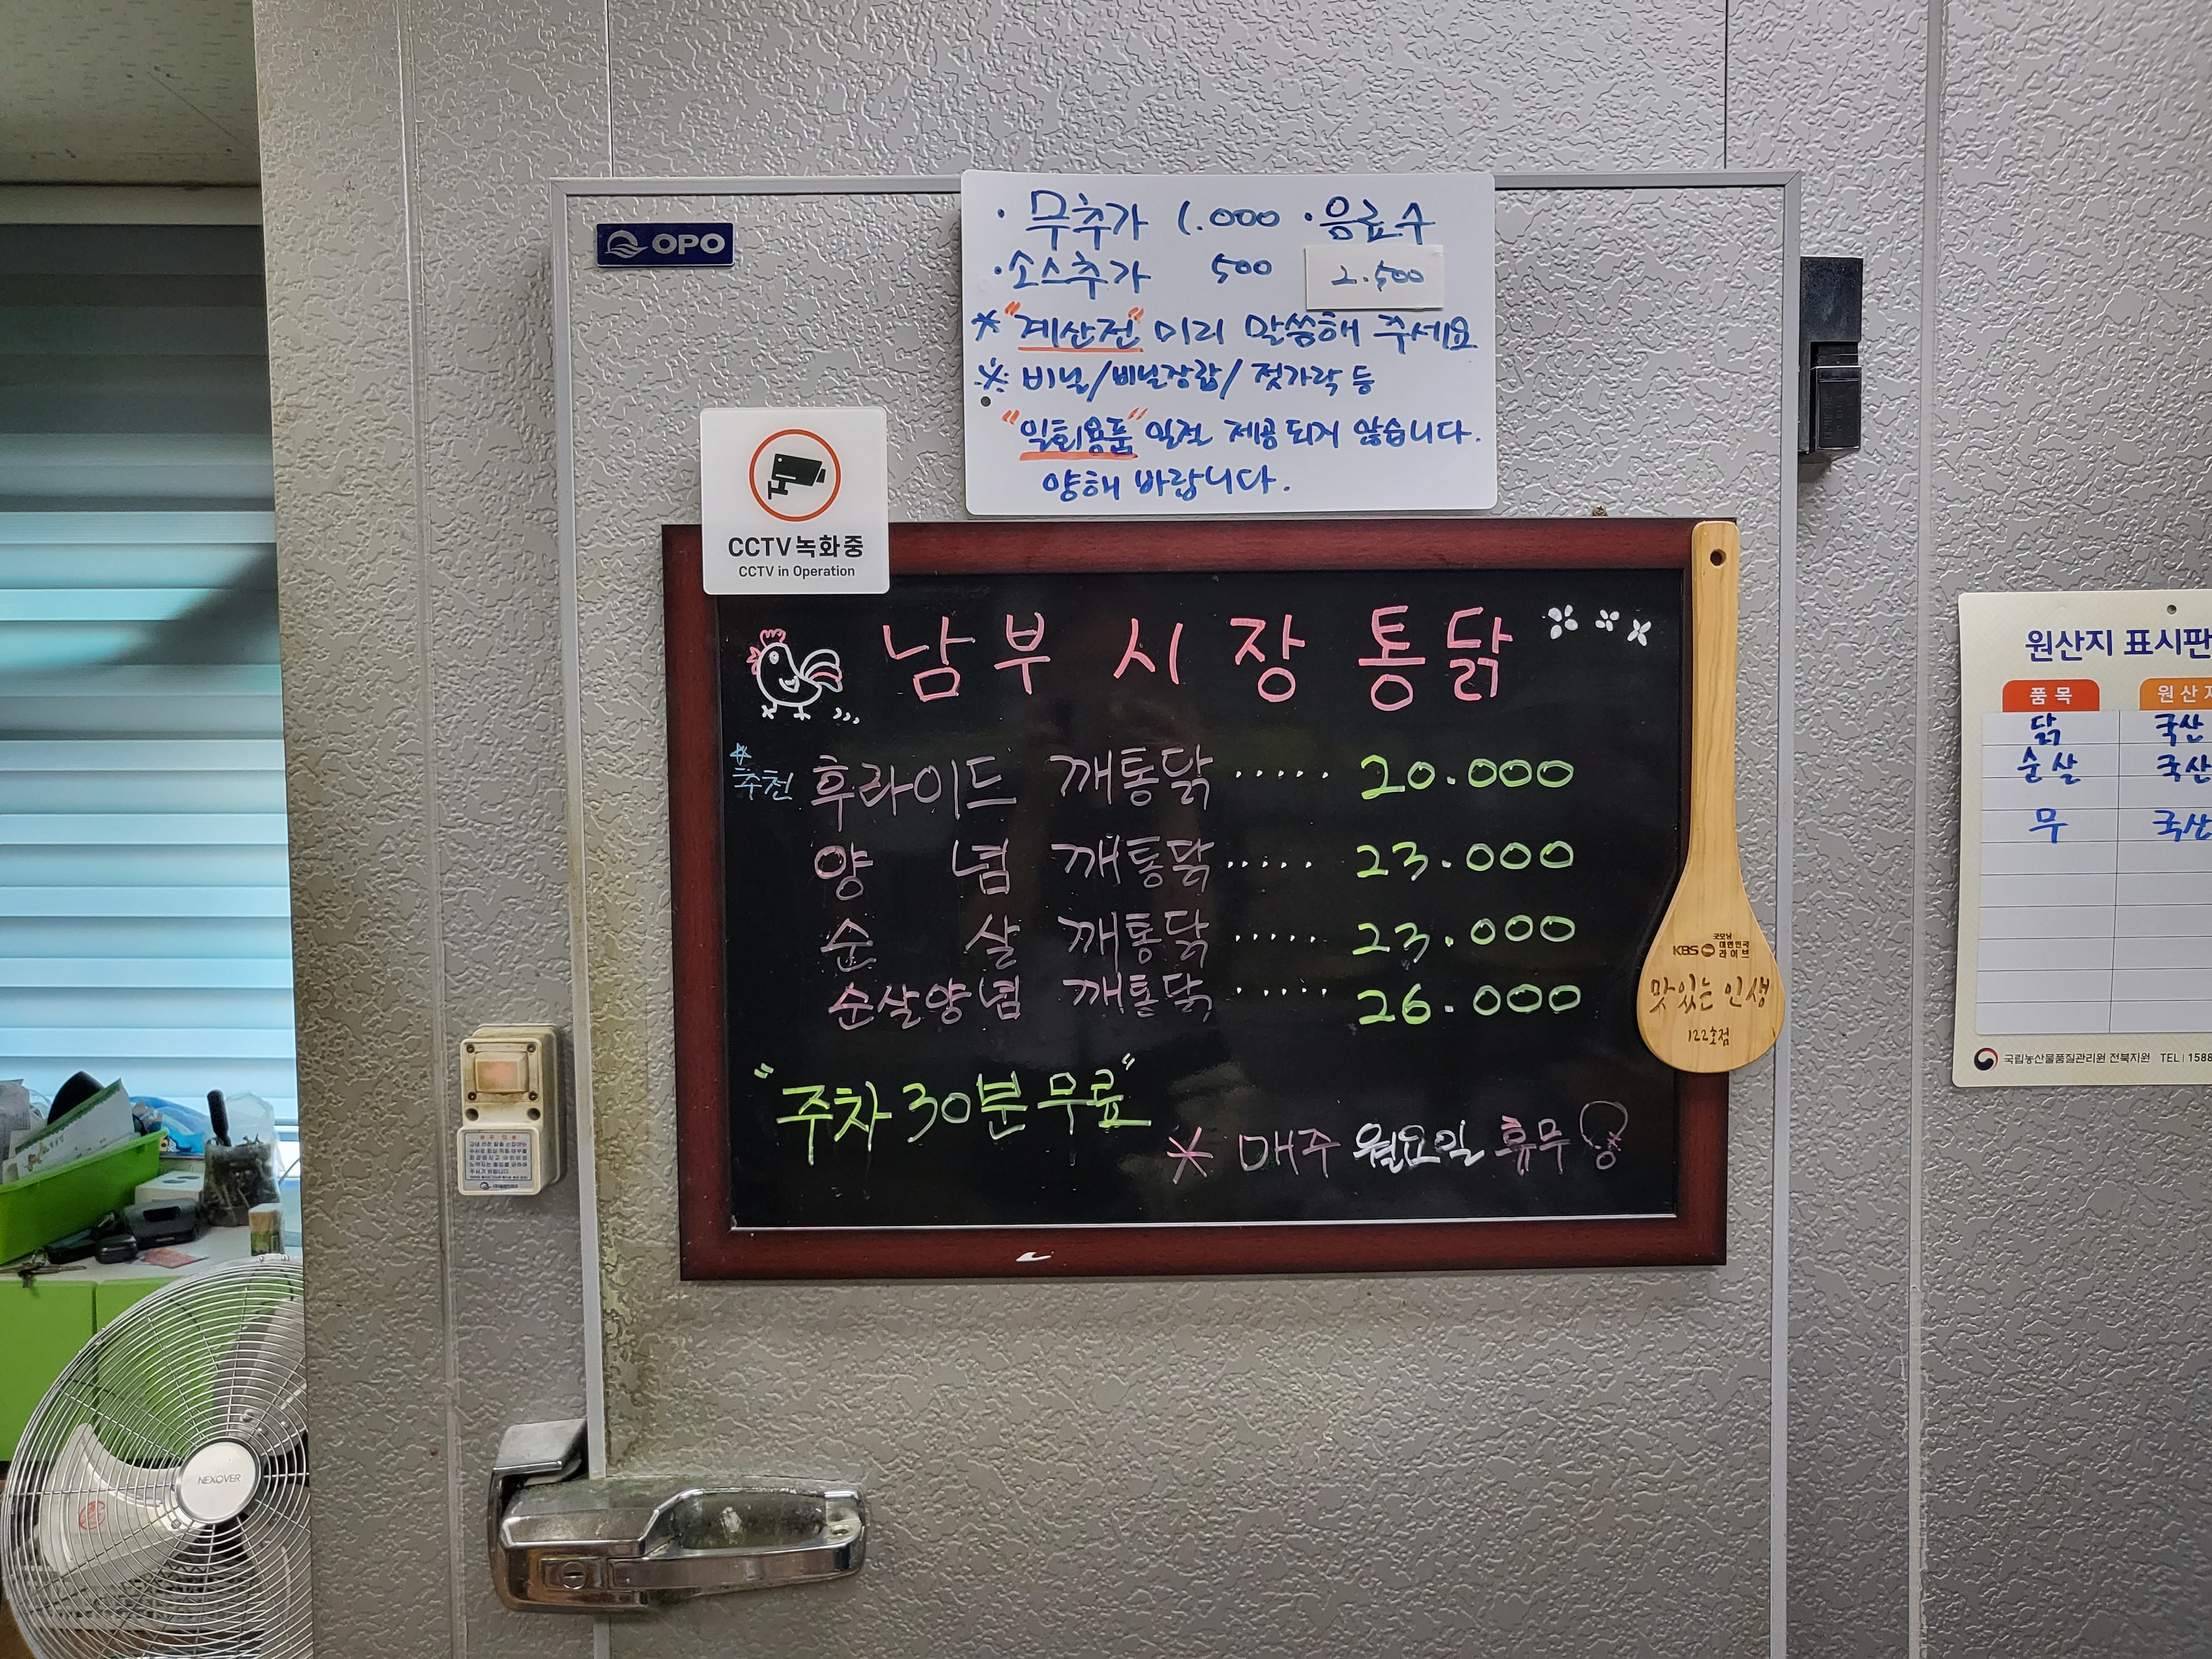 OPO
· 무추가 1.000 · 음료수
· 소스추가 500 2.500
* "계산전" 미리 말씀해 주세요
※ 비닐/비닐장갑/ 젓가락 등
"일회용품" 일절 제공되지 않습니다.
양해 바랍니다.
CCTV 녹화중
CCTV in Operation
남부시장통닭
추천 후라이드 깨통닭 ..... 20.000
양념 깨통닭 ..... 23.000
순살 깨통닭 ..... 23.000
순살양념 깨통닭 ..... 26.000
"주차 30분 무료"
* 매주 월요일 휴무
KBS 굿모닝 대한민국 라이브
맛있는 인생
122호점
원산지 표시판
품목 원산지
닭 국산
순살 국산
무 국산
국립농산물품질관리원 전북지원 TEL | 1588
NEXOVER